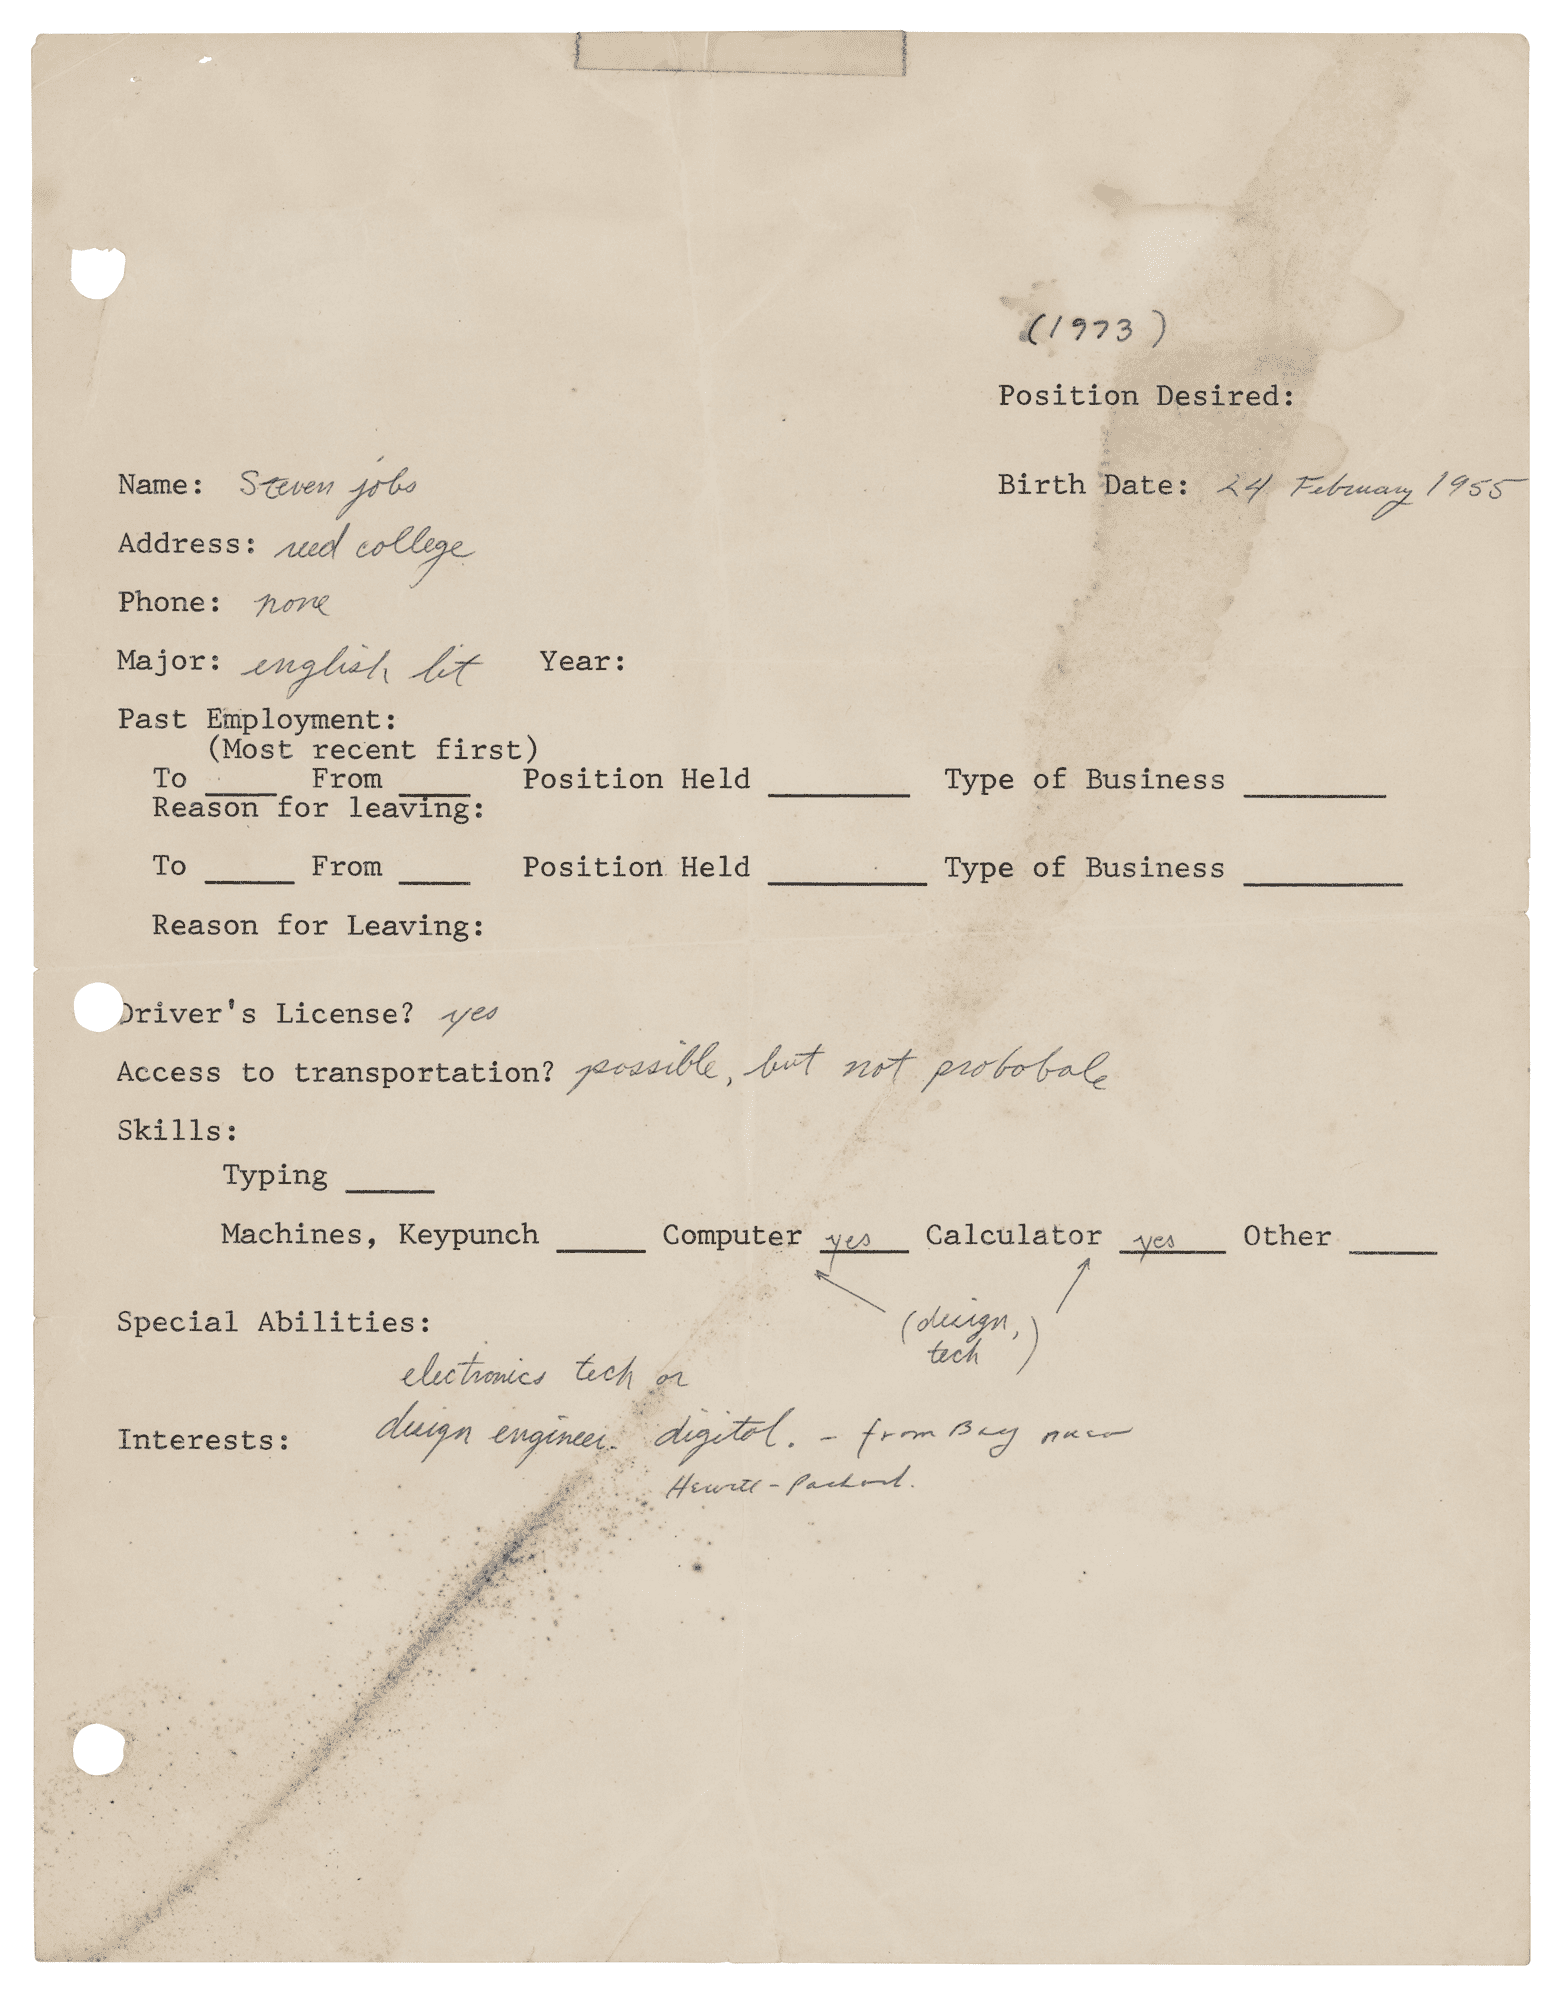 (1973)
Position Desired:
Name: Steven jobs Birth Date: 24 February 1955
Address: reed college
Phone: none
Major: english lit Year:
Past Employment:
(Most recent first)
To ____ From ____ Position Held ________ Type of Business ________
Reason for leaving:
To _____ From ____ Position Held _________ Type of Business _________
Reason for Leaving:
Driver's License? yes
Access to transportation? possible, but not probobale
Skills:
Typing _____
Machines, Keypunch _____ Computer yes Calculator yes Other _____
(design,
tech)
Special Abilities:
electronics tech or
Interests: design engineer. digital. - from Bay
Hewitt-Packard.